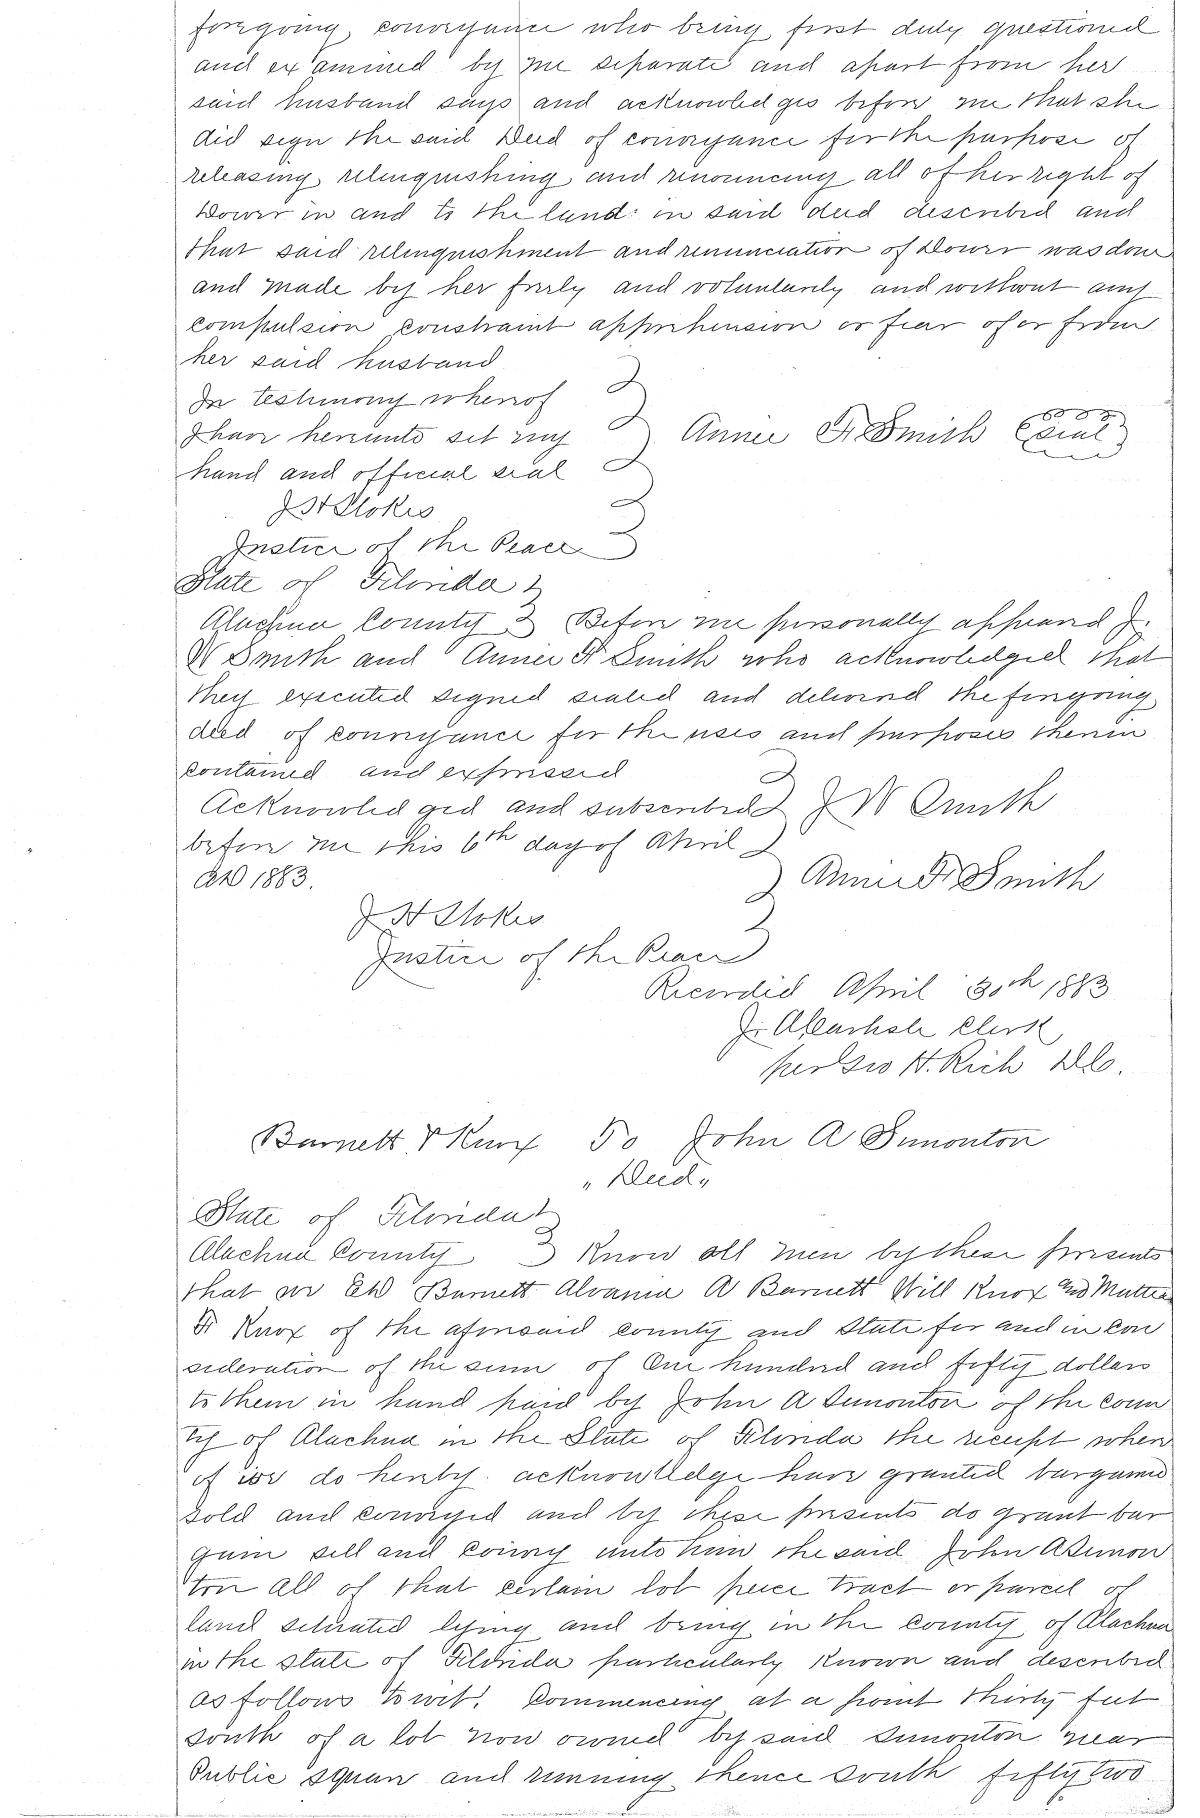 foregoing conveyance who being first duly questioned
and examined by me separate and apart from her
said husband says and acknowledges before me that she
did sign the said Deed of conveyance for the purpose of
releasing, relinquishing and renouncing all of her right of
Dower in and to the land in said deed described and
that said relinquishment and renunciation of Dower was done
and made by her freely and voluntarily and without any
compulsion constraint apprehension or fear of or from
her said husband
In testimony whereof
I have hereunto set my Annie F. Smith Seal
hand and official seal
J H Stokes
Justice of the Peace
State of Florida
Alachua County Before me personally appeared J.
W Smith and Annie F Smith who acknowledged that
they executed signed sealed and delivered the foregoing
deed of conveyance for the uses and purposes therein
contained and expressed
Acknowledged and subscribed J W Smith
before me this 6th day of April
AD 1883. Annie F. Smith
J H Stokes
Justice of the Peace
Recorded April 30th 1883
J. A Carlisle Clerk
per Geo H. Rich D.C.
Barnett & Knox To John A Simonton
" Deed "
State of Florida
Alachua County Know all men by these presents
that we EW Barnett Alvania A Barnett Will Knox and Mattie
F Knox of the aforesaid county and state for and in con
sideration of the sum of One hundred and fifty dollars
to them in hand paid by John A Simonton of the coun
ty of Alachua in the State of Florida the receipt where
of we do hereby acknowledge have granted bargained
sold and conveyed and by these presents do grant bar
gain sell and convey unto him the said John A Simon
ton all of that certain lot peice tract or parcel of
land situated lying and being in the county of Alachua
in the state of Florida particularly known and described
as follows to wit. Commencing at a point thirty feet
south of a lot now owned by said Simonton near
Public square and running thence south fifty two